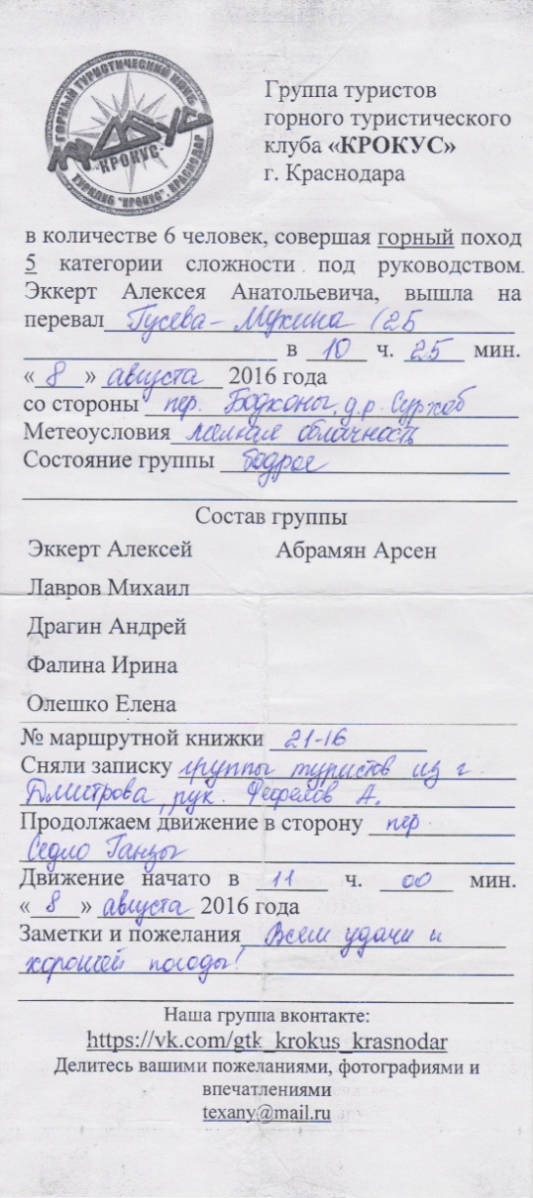 ГОРНЫЙ ТУРИСТИЧЕСКИЙ КЛУБ
КРОКУС
ТУРКЛУБ "КРОКУС", КРАСНОДАР
Группа туристов
горного туристического
клуба «КРОКУС»
г. Краснодара
в количестве 6 человек, совершая горный поход
5 категории сложности под руководством
Эккерт Алексея Анатольевича, вышла на
перевал Гусева-Мухина (2Б
в 10 ч. 25 мин.
«8» августа 2016 года
со стороны пер. Бодхоны, д.р. Сурхоб
Метеоусловия малая облачность
Состояние группы бодрое
Состав группы
Эккерт Алексей Абрамян Арсен
Лавров Михаил
Драгин Андрей
Фалина Ирина
Олешко Елена
№ маршрутной книжки 21-16
Сняли записку группы туристов из г.
Дмитрова, рук. Фефелов А.
Продолжаем движение в сторону пер.
Седло Ганзы
Движение начато в 11 ч. 00 мин.
«8» августа 2016 года
Заметки и пожелания Всем удачи и
хорошей погоды!
Наша группа вконтакте:
https://vk.com/gtk_krokus_krasnodar
Делитесь вашими пожеланиями, фотографиями и
впечатлениями
texany@mail.ru